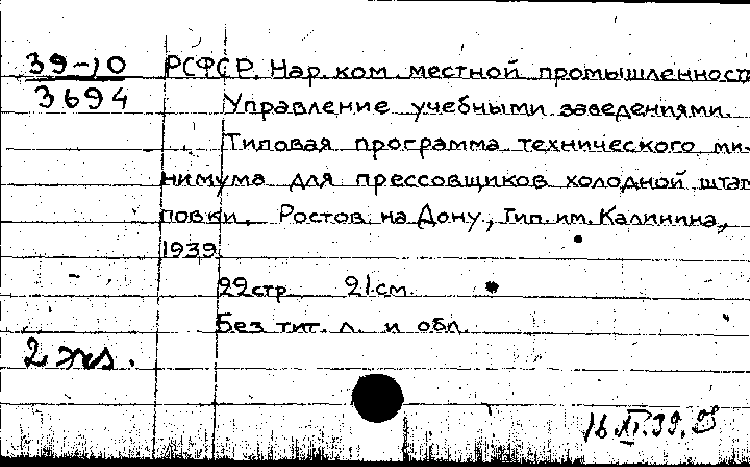 39-10
3694
РСФСР. Нар. ком. местной промышленност
Управление учебными заведениями.
Типовая программа технического ми-
нимума для прессовщиков холодной штам
повки. Ростов на Дону, Тип. им. Калинина,
1939
22стр. 21см.
Без тит. л. и обл.
2 экз.
16 XI.39.